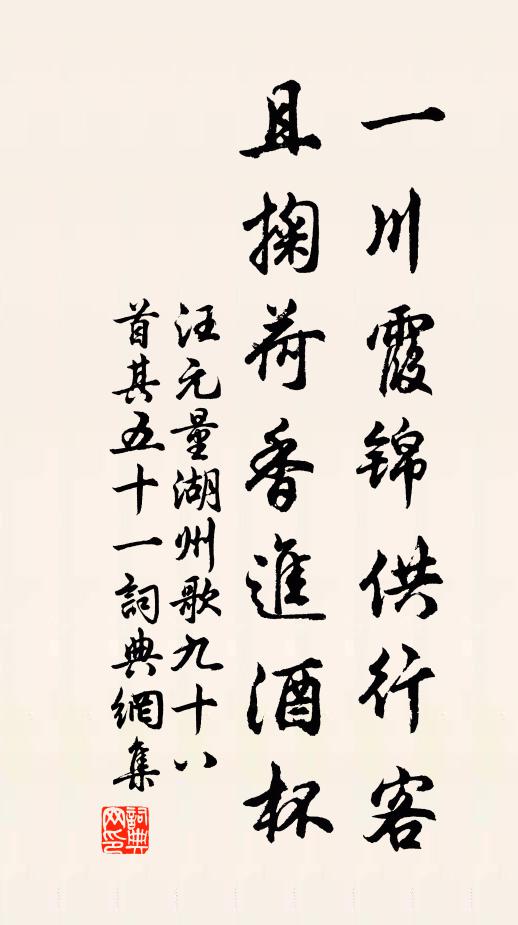 一川霞錦供行客
且掬荷香進酒杯
汪元量湖州歌九十八
首其五十一詞典網集
詞典網印